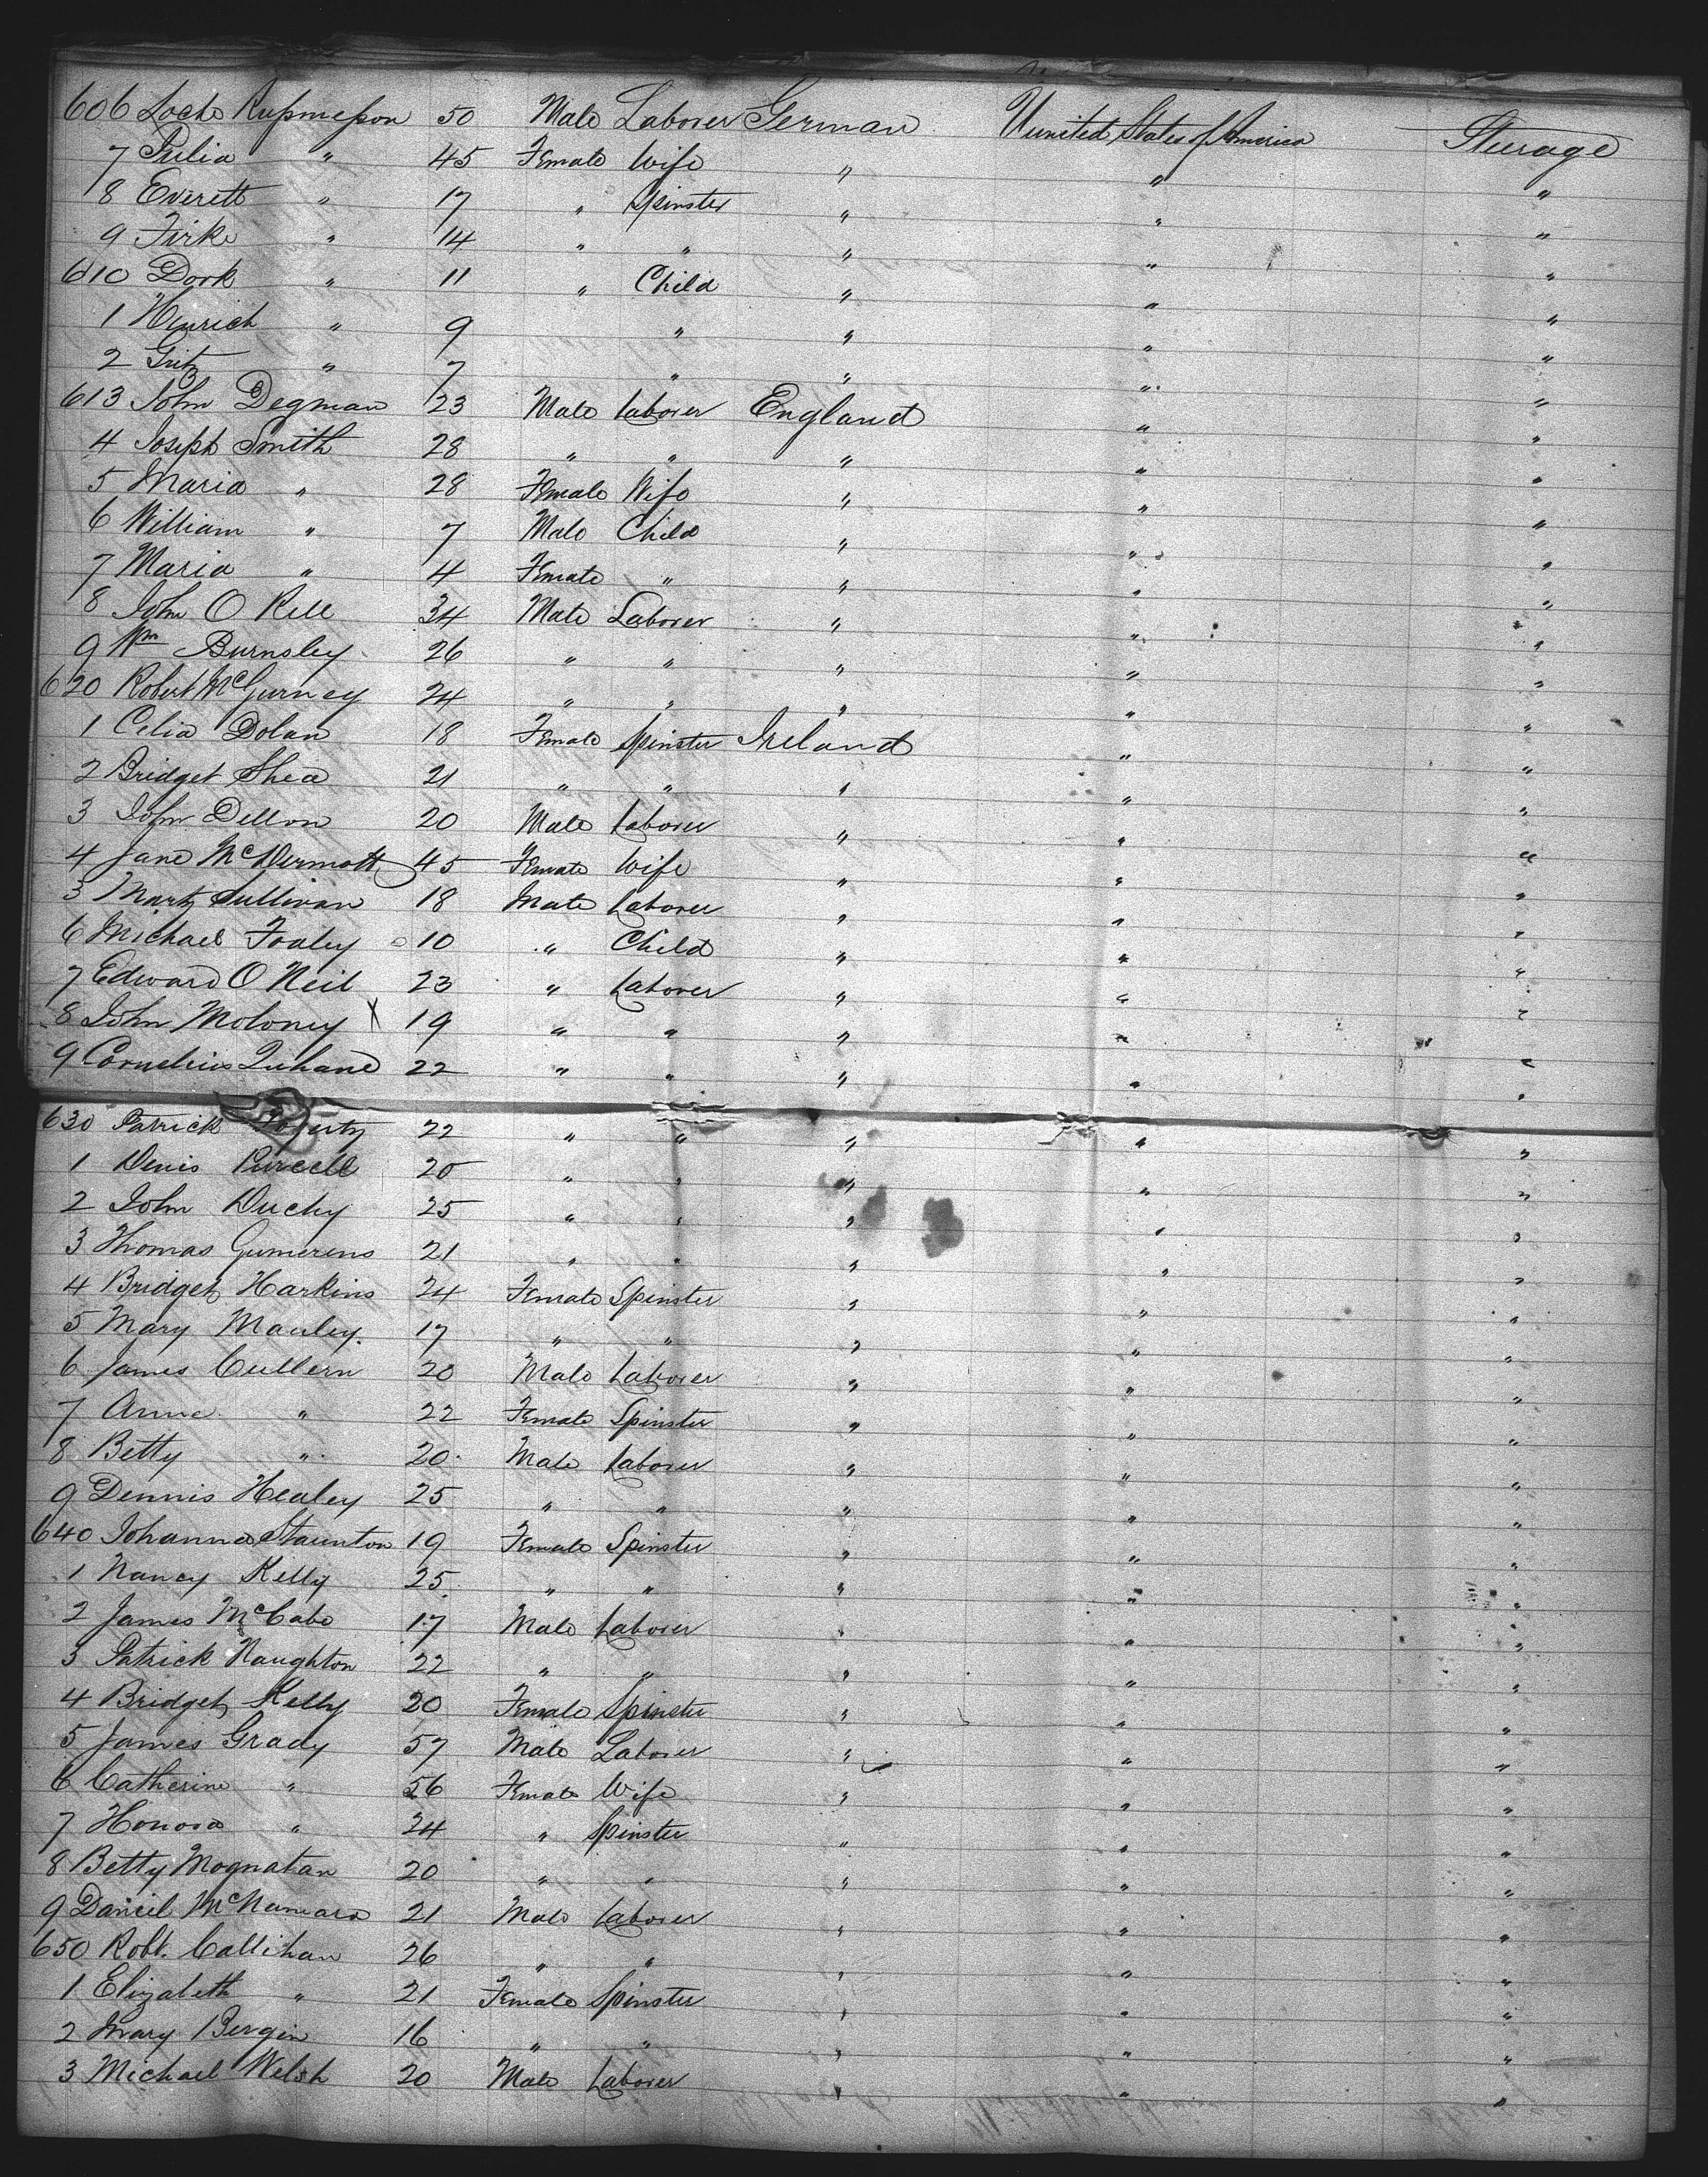 606 Loche Rußmeßon 50 Male Laborer German Uunited States of America Sturage
7 Julia " 45 Female Wife " " "
8 Everett " 17 " Spinster " " "
9 Firke " 14 " " " " "
610 Dork " 11 " Child " " "
1 Heinrich " 9 " " " "
2 Fritz " 7 " " " "
613 John Degman 23 Male Laborer England " "
4 Joseph Smith 28 " " " " "
5 Maria " 28 Female Wife " " "
6 William " 7 Male Child " " "
7 Maria " 4 Female " " " "
8 John O Kell 34 Male Laborer " " "
9 Wm Burnsley 26 " " " " "
620 Robert McGurney 24 " " " " "
1 Celia Dolan 18 Female Spinster Ireland " "
2 Bridget Shea 21 " " " " "
3 John Dellon 20 Male Laborer " " "
4 Jane McDermott 45 Female Wife " " "
5 Mart Sullivan 18 Male Laborer " " "
6 Michael Foaley 10 " Child " " "
7 Edward O Neil 23 " Laborer " " "
8 John Moloney X 19 " " " " "
9 Cornelius Luhane 22 " " " " "
630 Patrick 22 " " " " "
1 Denis Purcell 20 " " " " "
2 John Duchy 25 " " " " "
3 Thomas Gumerens 21 " " " " "
4 Bridget Harkins 24 Female Spinster " " "
5 Mary Manley 17 " " " " "
6 James Cullern 20 Male Laborer " " "
7 Anne " 22 Female Spinster " " "
8 Betty " 20 Male Laborer " " "
9 Dennis Healey 25 " " " " "
640 Johanna Staunton 19 Female Spinster " " "
1 Nancy Kelly 25 " " " " "
2 James McCabe 17 Male Laborer " " "
3 Patrick Naughton 22 " " " " "
4 Bridget Kelly 20 Female Spinster " " "
5 James Grady 57 Male Laborer " " "
6 Catherine " 56 Female Wife " " "
7 Honora " 24 " Spinster " " "
8 Betty Mognatan 20 " " " " "
9 Daniel McNamara 21 Male Laborer " " "
650 Robt. Callihan 26 " " " " "
1 Elizabeth " 21 Female Spinster " " "
2 Mary Bergin 16 " " " " "
3 Michael Welsh 20 Male Laborer " " "